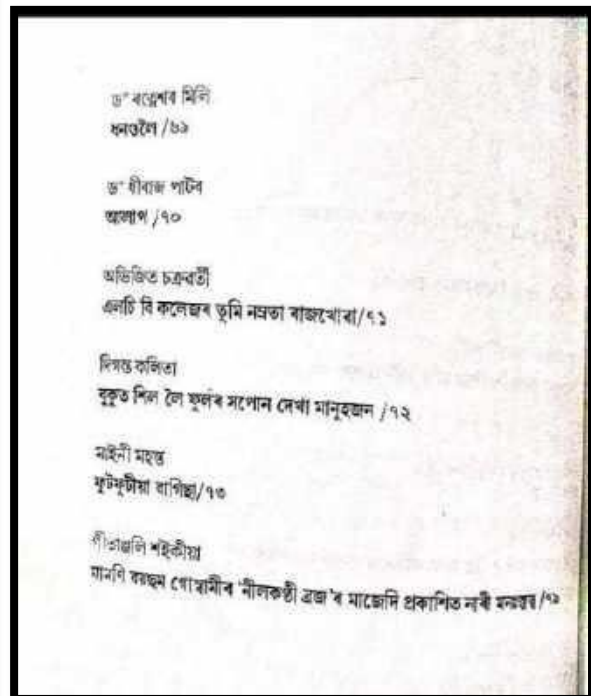 ড° ৰত্নেশ্বৰ মিলি
ধনগুলৈ /৬৯
ড° ধীৰাজ পাটৰ
আলাপ /৭০
অভিজিত চক্ৰৱৰ্তী
এলচি বি কলেজৰ তুমি নম্ৰতা ৰাজখোৱা/৭১
দিগন্ত কলিতা
বুকুত শিল লৈ ফুলৰ সপোন দেখা মানুহজন /৭২
মাইনী মহন্ত
ফুটফুটীয়া বাগিছা/৭৩
গীতাঞ্জলি শইকীয়া
মামণি ৰয়ছম গোস্বামীৰ 'নীলকণ্ঠী ব্ৰজ'ৰ মাজেদি প্ৰকাশিত নাৰী মনস্তত্ত্ব